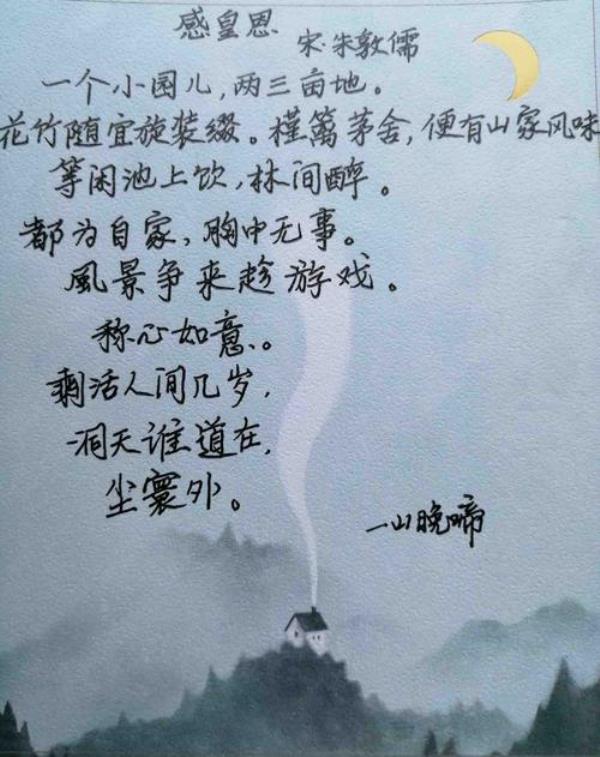 感皇恩
宋·朱敦儒
一个小园儿，两三亩地。
花竹随宜旋装缀。槿篱茅舍，便有山家风味
等闲池上饮，林间醉。
都为自家，胸中无事。
風景争来趁游戏。
称心如意。
剩活人间几岁，
洞天谁道在，
尘寰外。
一山晚啼